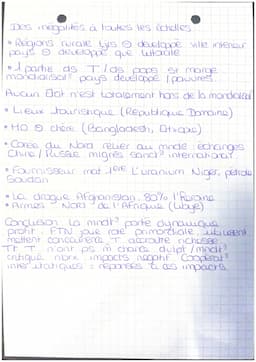 Des inégalités à toutes les échelles
• Régions rurale bys ⊖ développé ville intérieur
pays ⊖ développé que littorale
• 1 partie ds T/ds pops st marge
mondialisat° pays développé/pauvres
Aucun Etat n'est totalement hors de la mondialisat°
• Lieux touristique (République Domaine)
• MO ⊖ chère (Bangladesh, Ethiopie)
• Corée du Nord relier au mnde échanges
Chine/Russie migrés sanct° internationa
• Fournisseur mat 1ère L'uranium Niger, pétrole
Soudan
• La drogue Afghanistan 80% l'héroine
• Armes Nord de l'Afrique (Libye)
Conclusion La mindt° porte dynamique
profit. FTN joue role primordiale, utilisent
mettent concurrence T accroitre richesse
Tt T n'ont ps m chance dvlpt/mndt°
critiqué nbrx impacts négatif Coopérat°
inter étatiques = réponses à ces impacts.